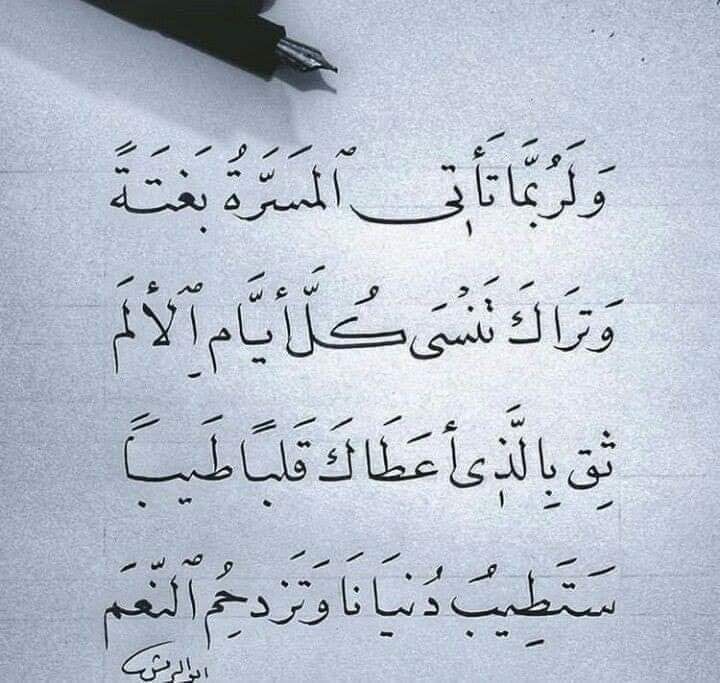 وَلَرُبَّمَا تَأْتِى ٱلمَسَرَّةُ بَغَتَةً
وَتَرَاكَ تَنْسَى كُلَّ أيَّامِ ٱلألَم
ثِق بِالَّذِى أعَطَاكَ قَلبًا طَيبًا
سَتَطِيبُ دُنيَانَا وَتَزدَحِمُ ٱلنِّعَم